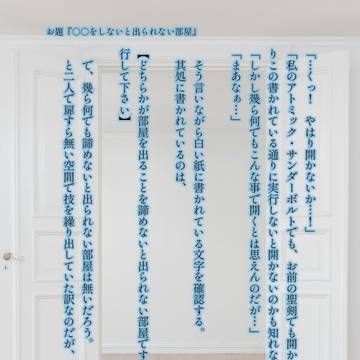 お題『○○をしないと出られない部屋』
「…くっ！　やはり開かないか…！」
「私のアトミック・サンダーボルトでも、お前の聖剣でも開か
りこの書かれている通りに実行しないと開かないのかも知れな
「しかし幾ら何でもこんな事で開くとは思えんのだが…」
「まあなぁ…」
そう言いながら白い紙に書かれている文字を確認する。
其処に書かれているのは、
【どちらかが部屋を出ることを諦めないと出られない部屋です
行して下さい】
で、幾ら何でも諦めないと出られない部屋は無いだろう。
と二人で扉すら無い空間で技を繰り出していた訳なのだが、